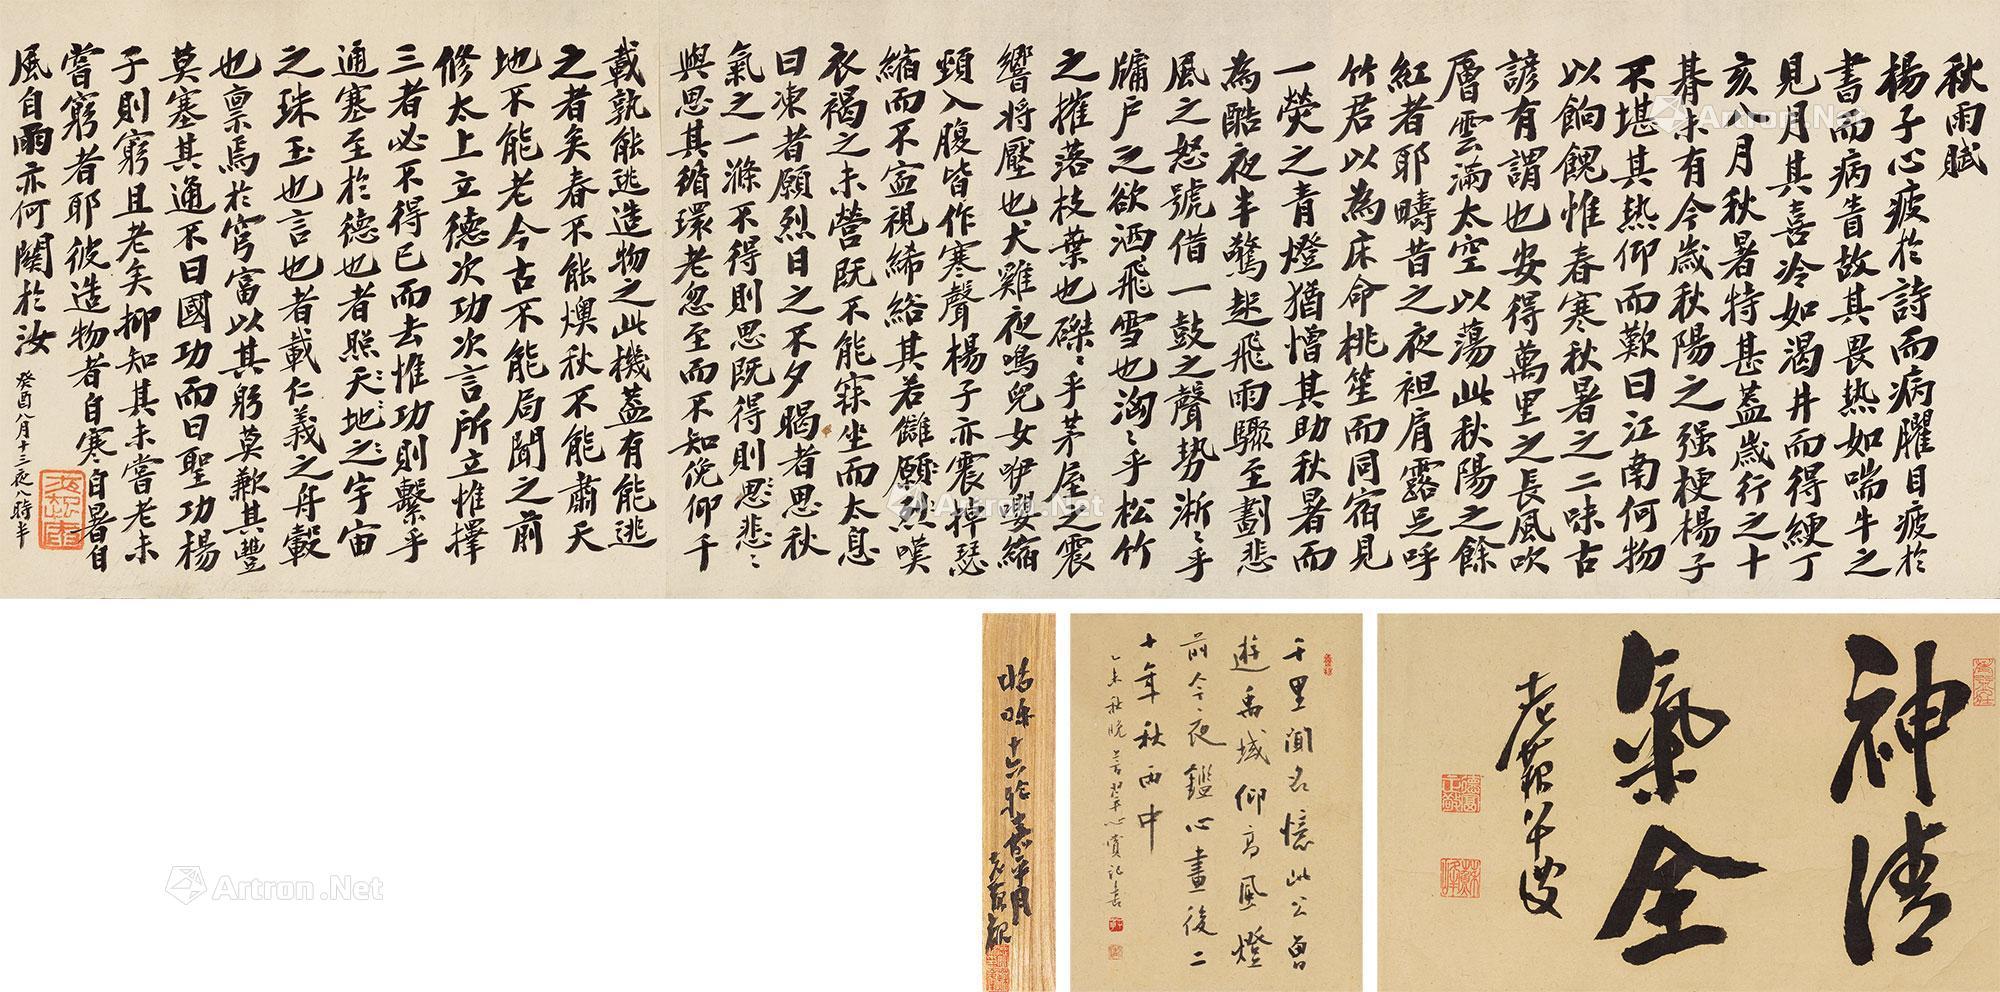 秋雨賦
楊子心疲於詩而病臞目疲於
書而病眚故其畏熱如喘牛之
見月其喜冷如渴井而得綆丁
亥八月秋暑特甚蓋歲行之十
朞未有今歲秋陽之强梗楊子
不堪其熱仰而歎曰江南何物
以餉餽惟春寒秋暑之二味古
諺有謂也安得萬里之長風吹
層雲滿太空以蕩此秋陽之餘
紅者耶疇昔之夜袒肩露足呼
竹君以為床命桃笙而同宿見
一熒之青燈猶憎其助秋暑而
為酷夜半驚起飛雨驟至劃悲
風之怒號借一鼓之聲勢淅〻乎
牖戶之欲洒飛雪也洶〻乎松竹
之摧落枝葉也磔〻乎茅屋之震
響将壓也犬雞夜鳴兒女咿嚶縮
頸入腹皆作寒聲楊子亦震掉瑟
縮而不寍視絺綌其若讎願烈嘆
衣褐之未營既不能寐坐而太息
曰凍者願烈日之不夕暍者思秋
氣之一滌不得則思既得則思悲〻
與思其循環老忽至而不知俛仰千
載孰能逃造物之此機蓋有能逃
之者矣春不能燠秋不能肅天
地不能老今古不能局聞之前
修太上立德次功次言所立惟擇
三者必不得已而去惟功則繫乎
通塞至於德也者照天地之宇宙
之珠玉也言也者載仁義之舟轂
也稟焉於穹富以其躬莫歉其豐
莫塞其通不曰國功而曰聖功楊
子則窮且老矣抑知其未嘗老未
嘗窮者耶彼造物者自寒自暑自
風自雨亦何關於汝
癸酉八月十三夜八時半
神清
氣全
老蘇
千里聞名憶此公曾
遊禹域仰高風燈
前今夜鑑心畫後二
十年秋雨中
乙未秋晚
心賞記